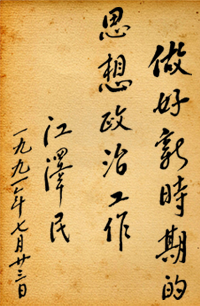 做好新時期的
思想政治工作
江澤民
一九九一年七月廿三日